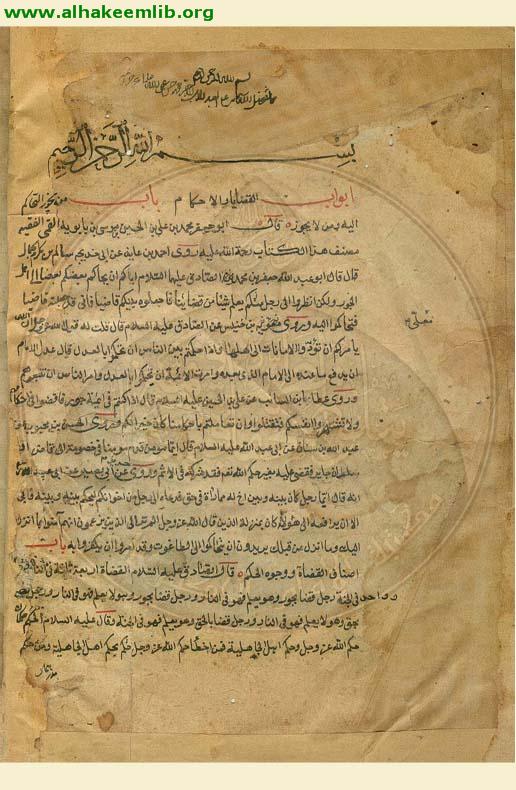 www.alhakeemlib.org
بسم الله الرحمن الرحيم
بسم الله الرحمن الرحيم
ابواب القضايا والاحكام باب من يجوز التحاكم
اليه ومن لا يجوز قال ابو جعفر محمد بن علي بن الحسين بن موسى بن بابويه القمي الفقيه
مصنف هذا الكتاب رحمة الله عليه روى احمد بن عايذ عن ابي خديجة سالم بن مكرم الجمال
قال قال ابو عبد الله جعفر بن محمد الصادق عليهما السلام اياكم ان يحاكم بعضكم بعضا الى اهل
الجور ولكن انظروا الى رجل منكم يعلم شيئا من قضايانا فاجعلوه بينكم قاضيا فاني قد جعلته قاضيا
فتحاكموا اليه وروى معلى بن خنيس عن الصادق عليه السلام قال قلت له قول الله عز وجل ان الله
يامركم ان تؤدوا الامانات الى اهلها واذا حكمتم بين الناس ان تحكموا بالعدل قال عدل الامام
ان يدفع ما عنده الى الامام الذي بعده وامرت الائمة ان يحكموا بالعدل وامر الناس ان يتبعوهم
وروى عطاء بن السايب عن علي بن الحسين عليه السلام قال اذا كنتم في ائمة جور فاقضوا في احكامهم
ولا تشهروا انفسكم فتقتلوا وان تعاملتم باحكامنا كان خيرا لكم وروى الحسن بن محبوب عن
عبد الله بن سنان عن ابي عبد الله عليه السلام قال ايما مومن قدم مومنا في خصومة الى قاض او
سلطان جاير فقضى عليه بغير حكم الله فقد شركه في الاثم وروى عن ابي بصير عن ابي عبد الله
انه قال ايما رجل كان بينه وبين اخ له مماراة في حق فدعاه الى رجل من اخوانكم ليحكم بينه وبينه فابى
الا ان يرافعه الى هؤلاء كان بمنزلة الذين قال الله عز وجل الم تر الى الذين يزعمون انهم آمنوا بما انزل
اليك وما انزل من قبلك يريدون ان يتحاكموا الى الطاغوت وقد امروا ان يكفروا به باب
اصناف القضاة ووجوه الحكم قال الصادق عليه السلام القضاة اربعة ثلثة في النار
وواحد في الجنة رجل قضا بجور وهو يعلم فهو في النار ورجل قضا بجور وهو لا يعلم فهو في النار ورجل قضا
بحق وهو لا يعلم فهو في النار ورجل قضا بالحق وهو يعلم فهو في الجنة وقال عليه السلام الحكم حكمان
حكم الله عز وجل وحكم اهل الجاهلية فمن اخطأ حكم الله عز وجل حكم بحكم اهل الجاهلية ومن حكم